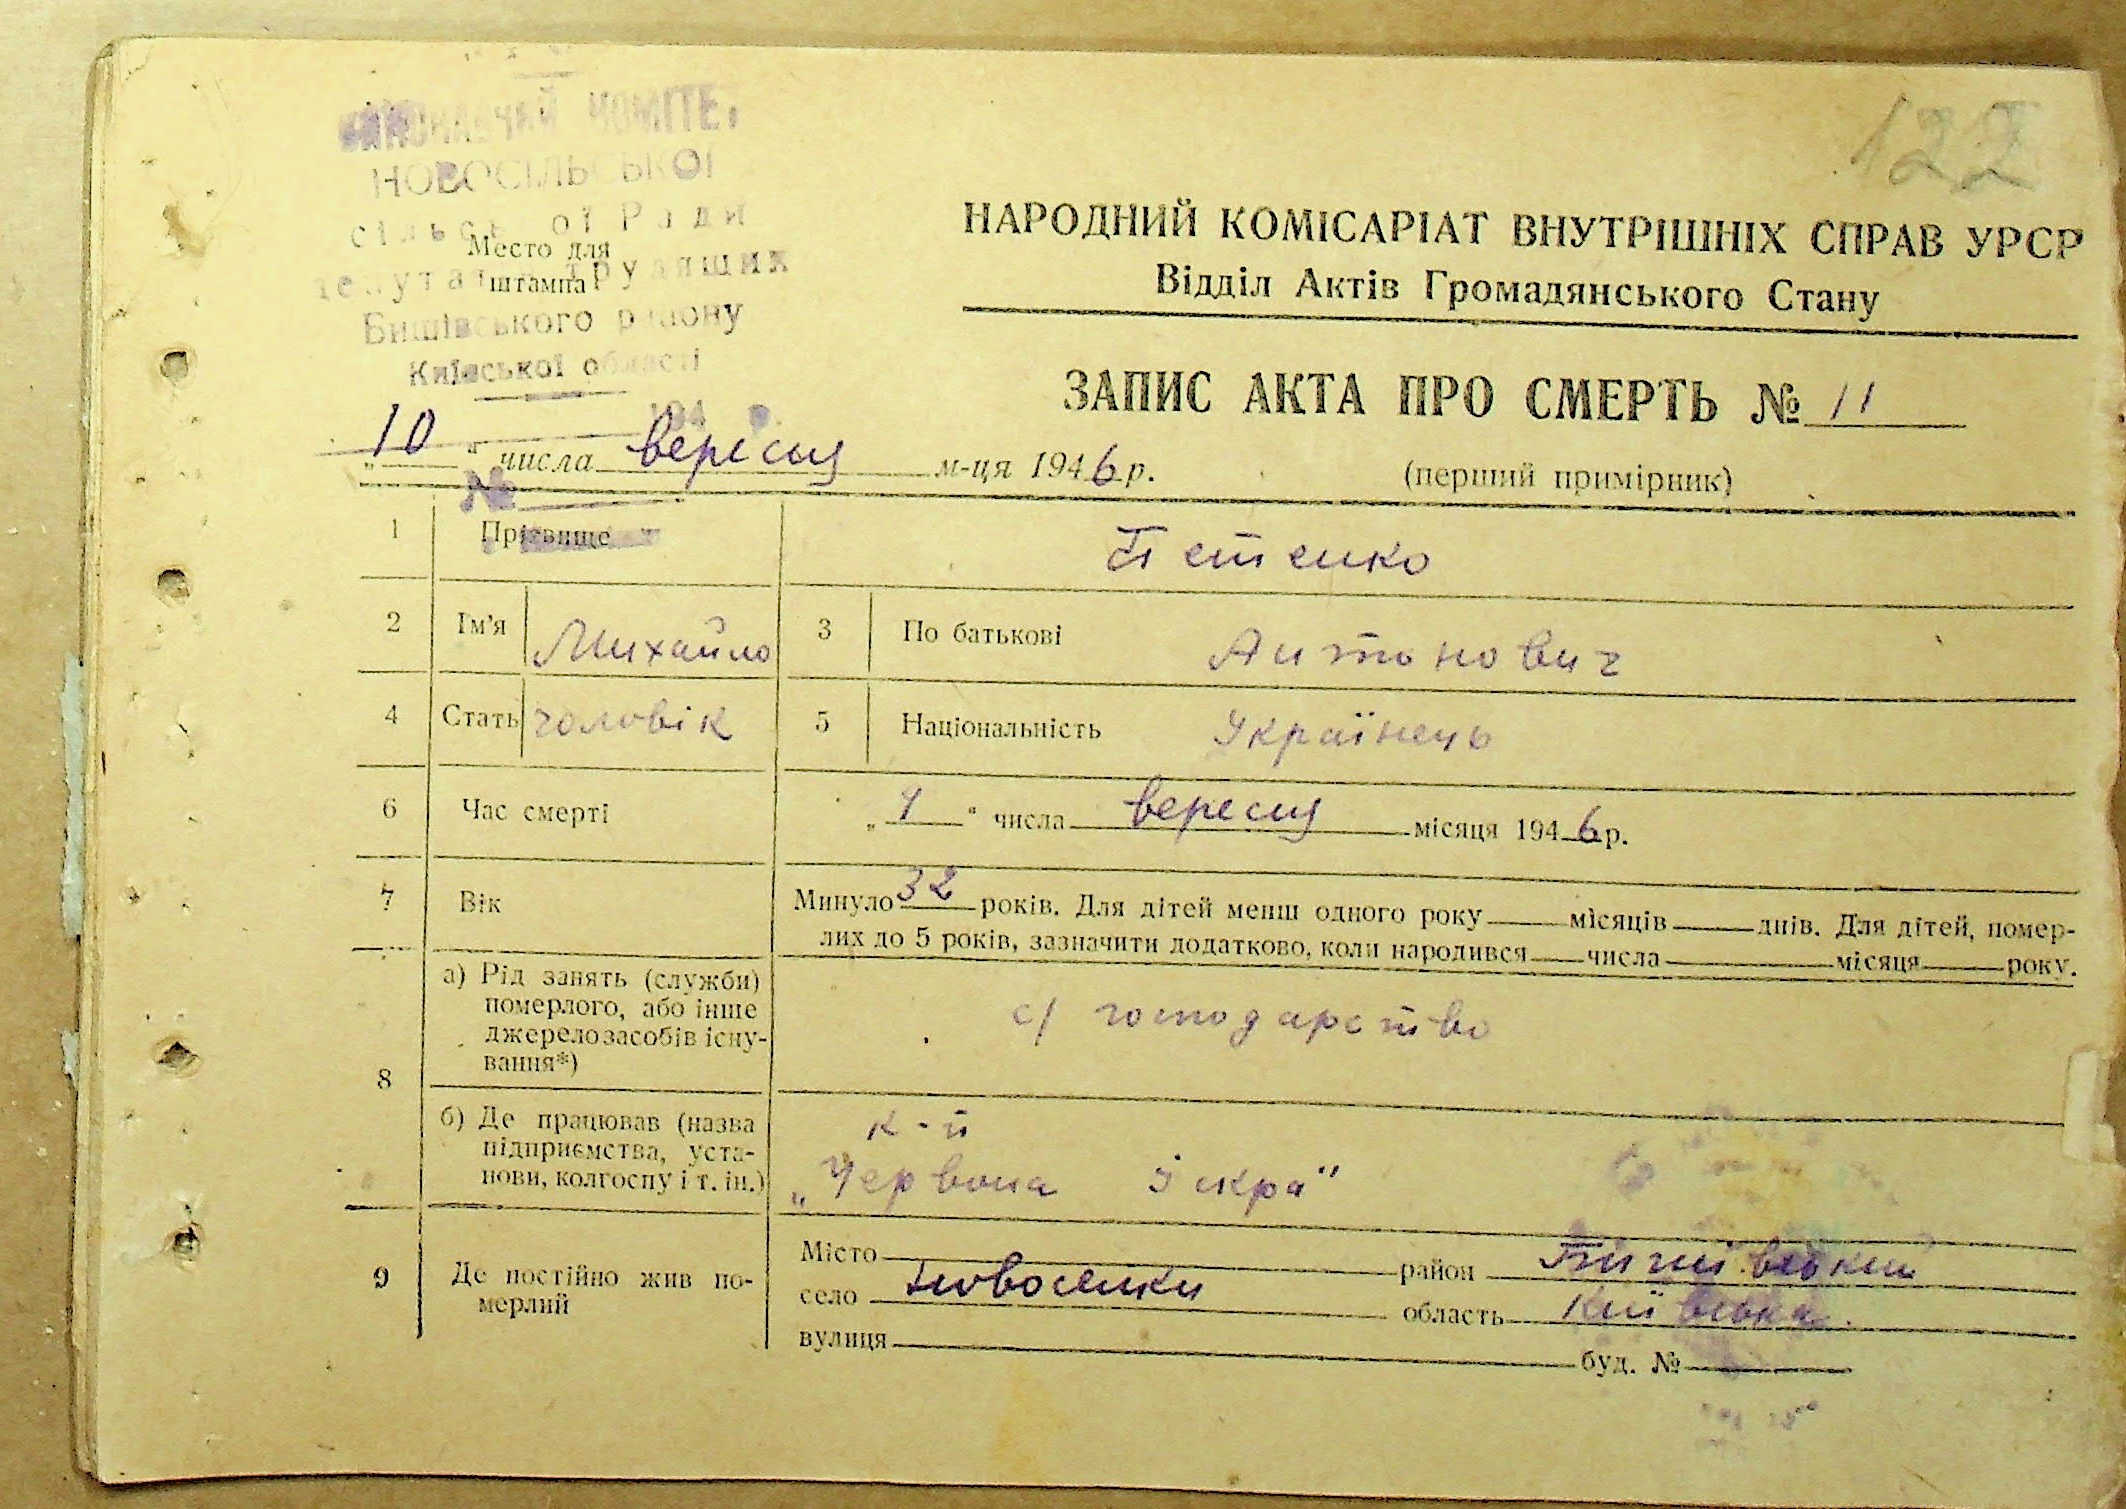 122
ВИКОНАВЧИЙ КОМІТЕТ
НОВОСІЛЬСЬКОЇ
сільської Ради
депутатів трудящих
Бишівського району
Київської області
194 р.
№
Место для
штампа
НАРОДНИЙ КОМІСАРІАТ ВНУТРІШНІХ СПРАВ УРСР
Відділ Актів Громадянського Стану
ЗАПИС АКТА ПРО СМЕРТЬ № 11
„10“ числа вересня м-ця 1946 р.
(перший примірник)
1 Прізвище
2 Ім'я Михайло 3 По батькові Антонович
4 Стать чоловік 5 Національність Українець
6 Час смерті „ “ числа вересня місяця 1946 р.
7 Вік Минуло 32 років. Для дітей менш одного року місяців днів. Для дітей, помер-
лих до 5 років, зазначити додатково, коли народився числа місяця року.
8 а) Рід занять (служби)
померлого, або інше
джерело засобів існу-
вання*)
с/ господарство
б) Де працював (назва
підприємства, уста-
нови, колгоспу і т. ін.)
к-п
„Червона Іскра"
9 Де постійно жив по-
мерлий
Місто район Бишівський
село Новоселки область Київська.
вулиця буд. №